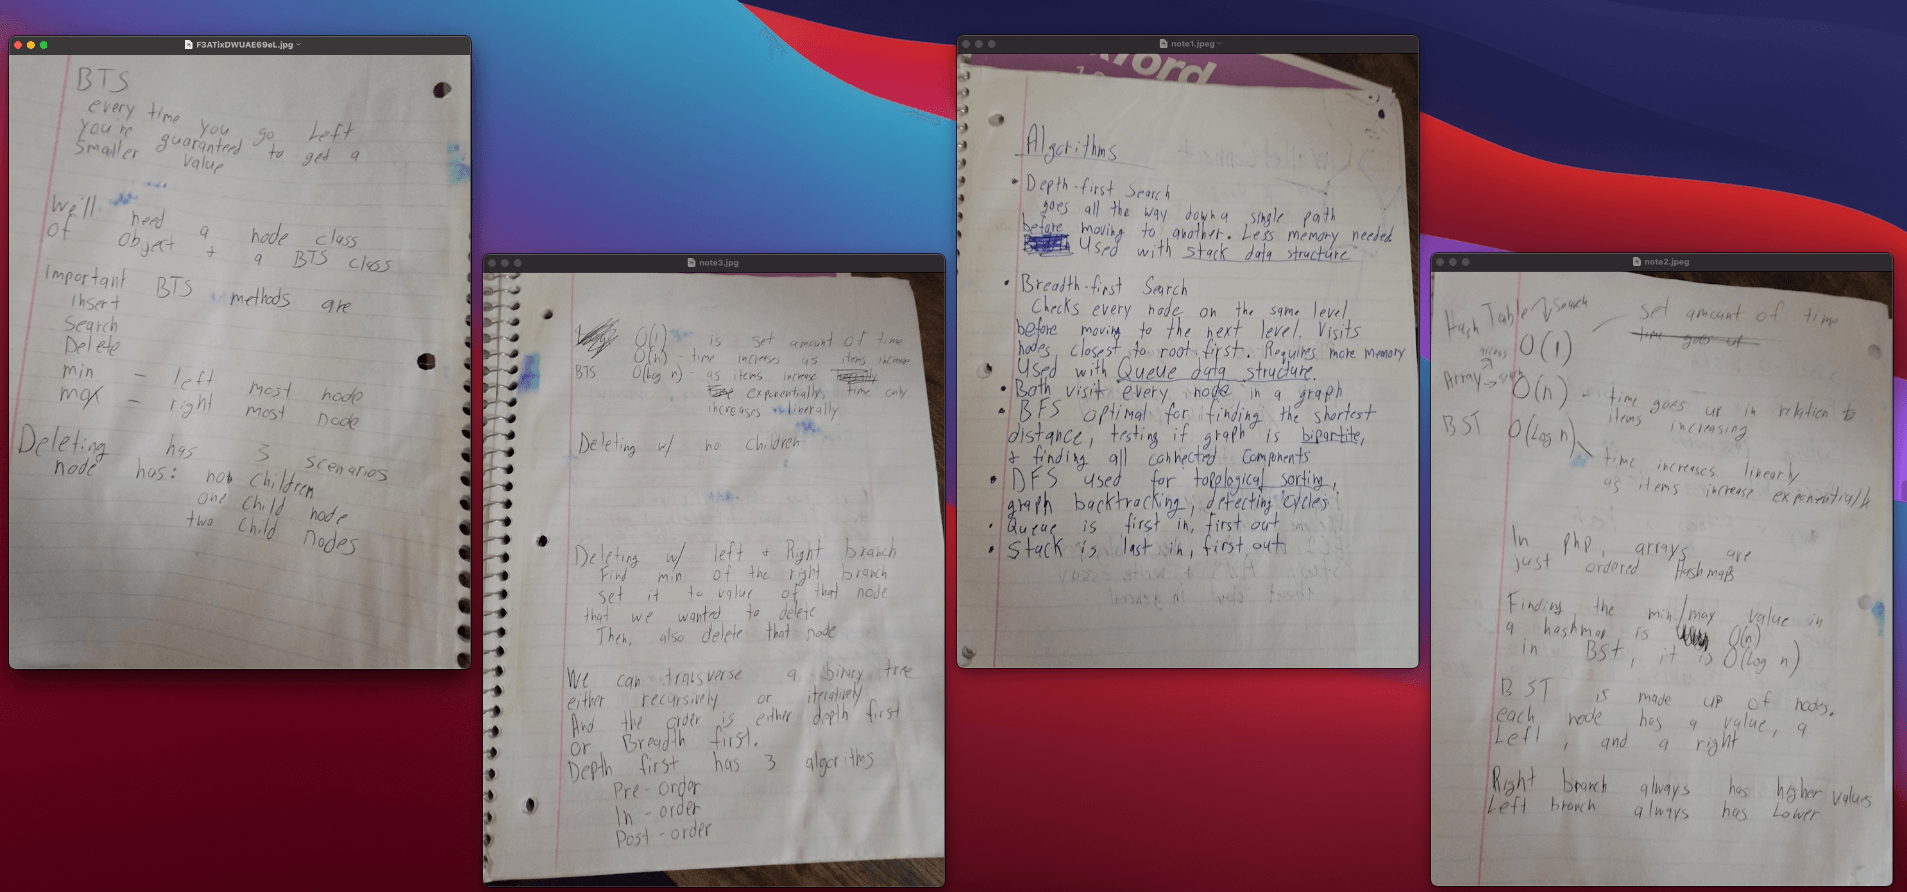 F3ATixDWUAE69eL.jpg
BTS
every time you go Left
you're guaranteed to get a
smaller value
We'll need a node class
Of Object + a BTS class
Important BTS methods are
insert
Search
Delete
min - left most node
max - right most node
Deleting has 3 scenarios
node has: no children
one child node
two child nodes
note3.jpg
O(1) is set amount of time
O(n) - time increases as items increase
BTS O(log n) - as items increase
exponentially, time only
increases linerally
Deleting w/ no children
Deleting w/ left + Right branch
Find min of the right branch
set it to value of that node
that we wanted to delete
Then, also delete that node
We can transverse a binary tree
either recursively or iteratively
And the order is either depth first
or Breadth first.
Depth first has 3 algorithms
Pre-order
In-order
Post-order
note1.jpeg
Algorithms
• Depth-first Search
goes all the way down a single path
before moving to another. Less memory needed.
Used with stack data structure
• Breadth-first Search
Checks every node on the same level
before moving to the next level. Visits
nodes closest to root first. Requires more memory
Used with Queue data structure.
• Both visit every node in a graph
• BFS optimal for finding the shortest
distance, testing if graph is bipartite,
+ finding all connected components
• DFS used for topological sorting,
graph backtracking, detecting cycles
• Queue is first in, first out
• Stack is last in, first out
note2.jpeg
Hash Table Search set amount of time
time goes up
access O(1)
Array → O(n) - time goes up in relation to
items increasing
BST O(Log n)
time increases linearly
as items increase exponentially
In php, arrays are
just ordered Hashmaps
Finding the min/max value in
a hashmap is O(n)
in BST, it is O(Log n)
BST is made up of nodes.
each node has a value, a
Left, and a right
Right branch always has higher values
Left branch always has Lower